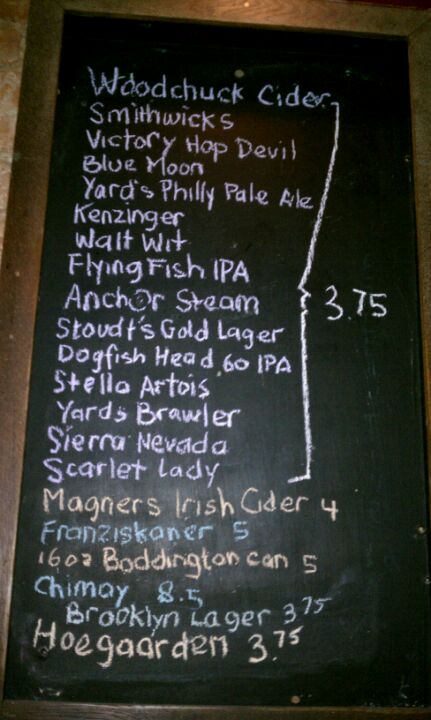 Woodchuck Cider
Smithwicks
Victory Hop Devil
Blue Moon
Yard's Philly Pale Ale
Kenzinger
Walt Wit
Flying Fish IPA
Anchor Steam
3.75
Stoudt's Gold Lager
Dogfish Head 60 IPA
Stella Artois
Yards Brawler
Sierra Nevada
Scarlet Lady
Magners Irish Cider 4
Franziskaner 5
16oz Boddington can 5
Chimay 8.5
Brooklyn Lager 3.75
Hoegaarden 3.75